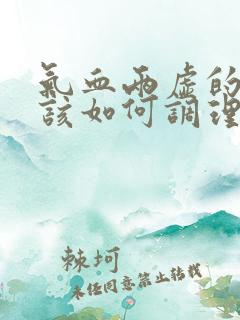 氣血兩虛的
該如何調理
棘坷
未任同意禁止转载